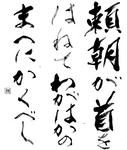 頼朝が首を
はねてわがはかの
まへにかくべし